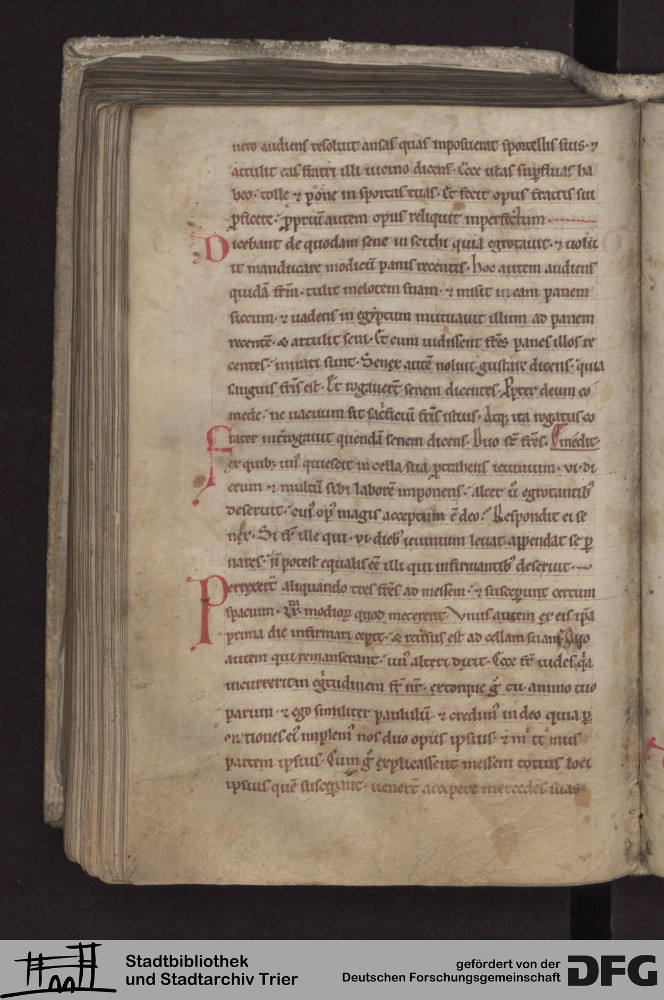 uero audiens resoluit ansas quas inposuerat sportellis suis· ⁊
attulit eas fratri illi uicino dicens· Ecce istas supfluas ha
beo· tolle ⁊ pone in sportas tuas· Et fecit opus fratris sui
pficere· pprium autem opus reliquit inperfectum·
Dicebant de quodam sene in scithi quia egrotauit· ⁊ uolu
it manducare modicū panis recentis· hoc autem audiens
quidā frm̄· tulit melotem suam· ⁊ misit in eam panem
siccum· ⁊ uadens in egyptum mutauit illum ad panem
recentē· & attulit seni· Et cum uidissent frēs panes illos re
centes· mirati sunt· Senex autē noluit gustare dicens· quia
sanguis fr̄is est· Et rogauerēt senem dicentes· Ppter deum co
mede· ne uacuum sit sacficiū fr̄is istius· Atq; ita rogatus co
frater introgauit quendā senem dicens· Duo st̄ frēs· medit·
ex quib; un' quiescit in cella sua ptrahens ieiunium· vi· di
erum· ⁊ multū sibi laborē inponens· alter ū egrotantib'
deseruit· cui' op' magis acceptum ē deo· Respondit ei se
nex· Si fr̄ ille qui· vi· dieb' ieiunium leuat· appendat se p
nares· n̄ potest equalis eē illi qui infirmantib' deseruit·
Perrexerūt aliquando tres frēs ad messem· ⁊ susceperunt certum
spacium· modiorꝝ quod meterent· Vnus autem ex eis ipa
prima die infirmari cepit· & reūsus est ad cellam suam· Duo
autem qui remanserant· un' alteri dixit· Ecce fr̄ uides q̄a
incurrerit in egtudinem fr̄ nr̄· extorque g̊ tu animo tuo
parum· ⁊ ego similiter paululū· ⁊ credim' in deo quia p
orationes ei' implem' nos duo opus ipsius· ⁊ m&im'
partem ipsius· Cum g̊ explicassent messem totius loci
ipsius quē susceperant· uenerūt accipere mercedes suas
Stadtbibliothek
und Stadtarchiv Trier
gefördert von der
Deutschen Forschungsgemeinschaft
DFG